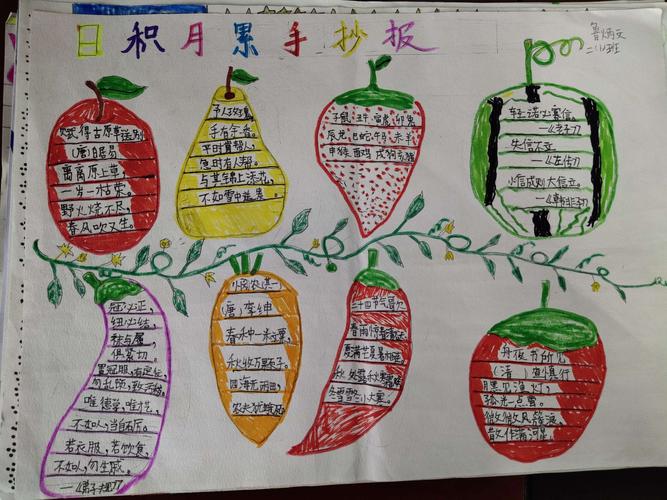 日积月累手抄报
鲁炳文
二(1)班
赋得古原草送别
(唐)白居易
离离原上草,
一岁一枯荣。
野火烧不尽,
春风吹又生。
予人玫瑰,
手有余香。
平时肯帮人,
急时有人帮。
与其锦上添花,
不如雪中送炭。
子鼠 丑牛 寅虎 卯兔
辰龙 巳蛇 午马 未羊
申猴 酉鸡 戌狗 亥猪
轻诺必寡信。
—《老子》
失信不立
—《左传》
小信成则大信立。
—《韩非子》
冠必正,
纽必结,
袜与履,
俱紧切。
置冠服,有定位,
勿乱顿,致污秽。
唯德学,唯才艺,
不如人,当自砺。
若衣服,若饮食,
不如人,勿生戚。
—《弟子规》
悯农(其一)
(唐)李绅
春种一粒粟,
秋收万颗子。
四海无闲田,
农夫犹饿死
二十四节气歌
春雨惊春清谷天
夏满芒夏暑相连
秋处露秋寒霜降
冬雪雪冬小大寒。
舟夜书所见
(清)查慎行
月黑见渔灯,
孤光一点萤。
微微风簇浪,
散作满河星。